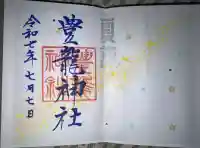 豊龍神社
令和七年七月七日